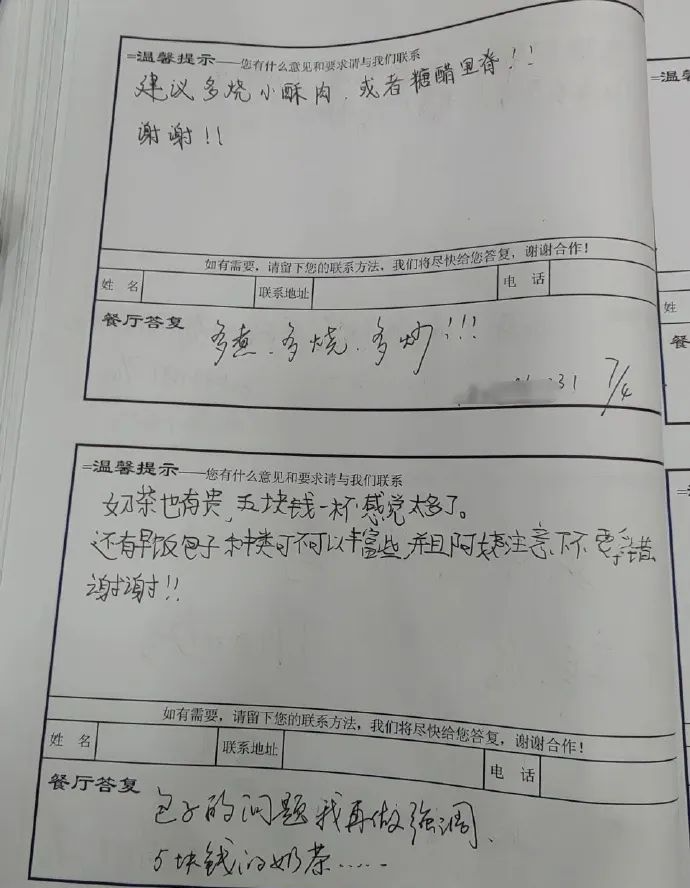 =温馨提示——您有什么意见和要求请与我们联系
建议多烧小酥肉、或者糖醋里脊!!
谢谢!!
如有需要，请留下您的联系方法，我们将尽快给您答复，谢谢合作!
姓 名 联系地址 电 话
餐厅答复
多煮、多烧、多炒!!!
31 7/4
=温馨提示——您有什么意见和要求请与我们联系
奶茶也有贵，五块钱一杯感觉太多了。
还有早饭包子种类可不可以丰富些，并且阿姨注意下不要拿错
谢谢!!
如有需要，请留下您的联系方法，我们将尽快给您答复，谢谢合作!
姓 名 联系地址 电 话
餐厅答复
包子的问题我再做强调、
5块钱的奶茶……
=温馨
姓
餐